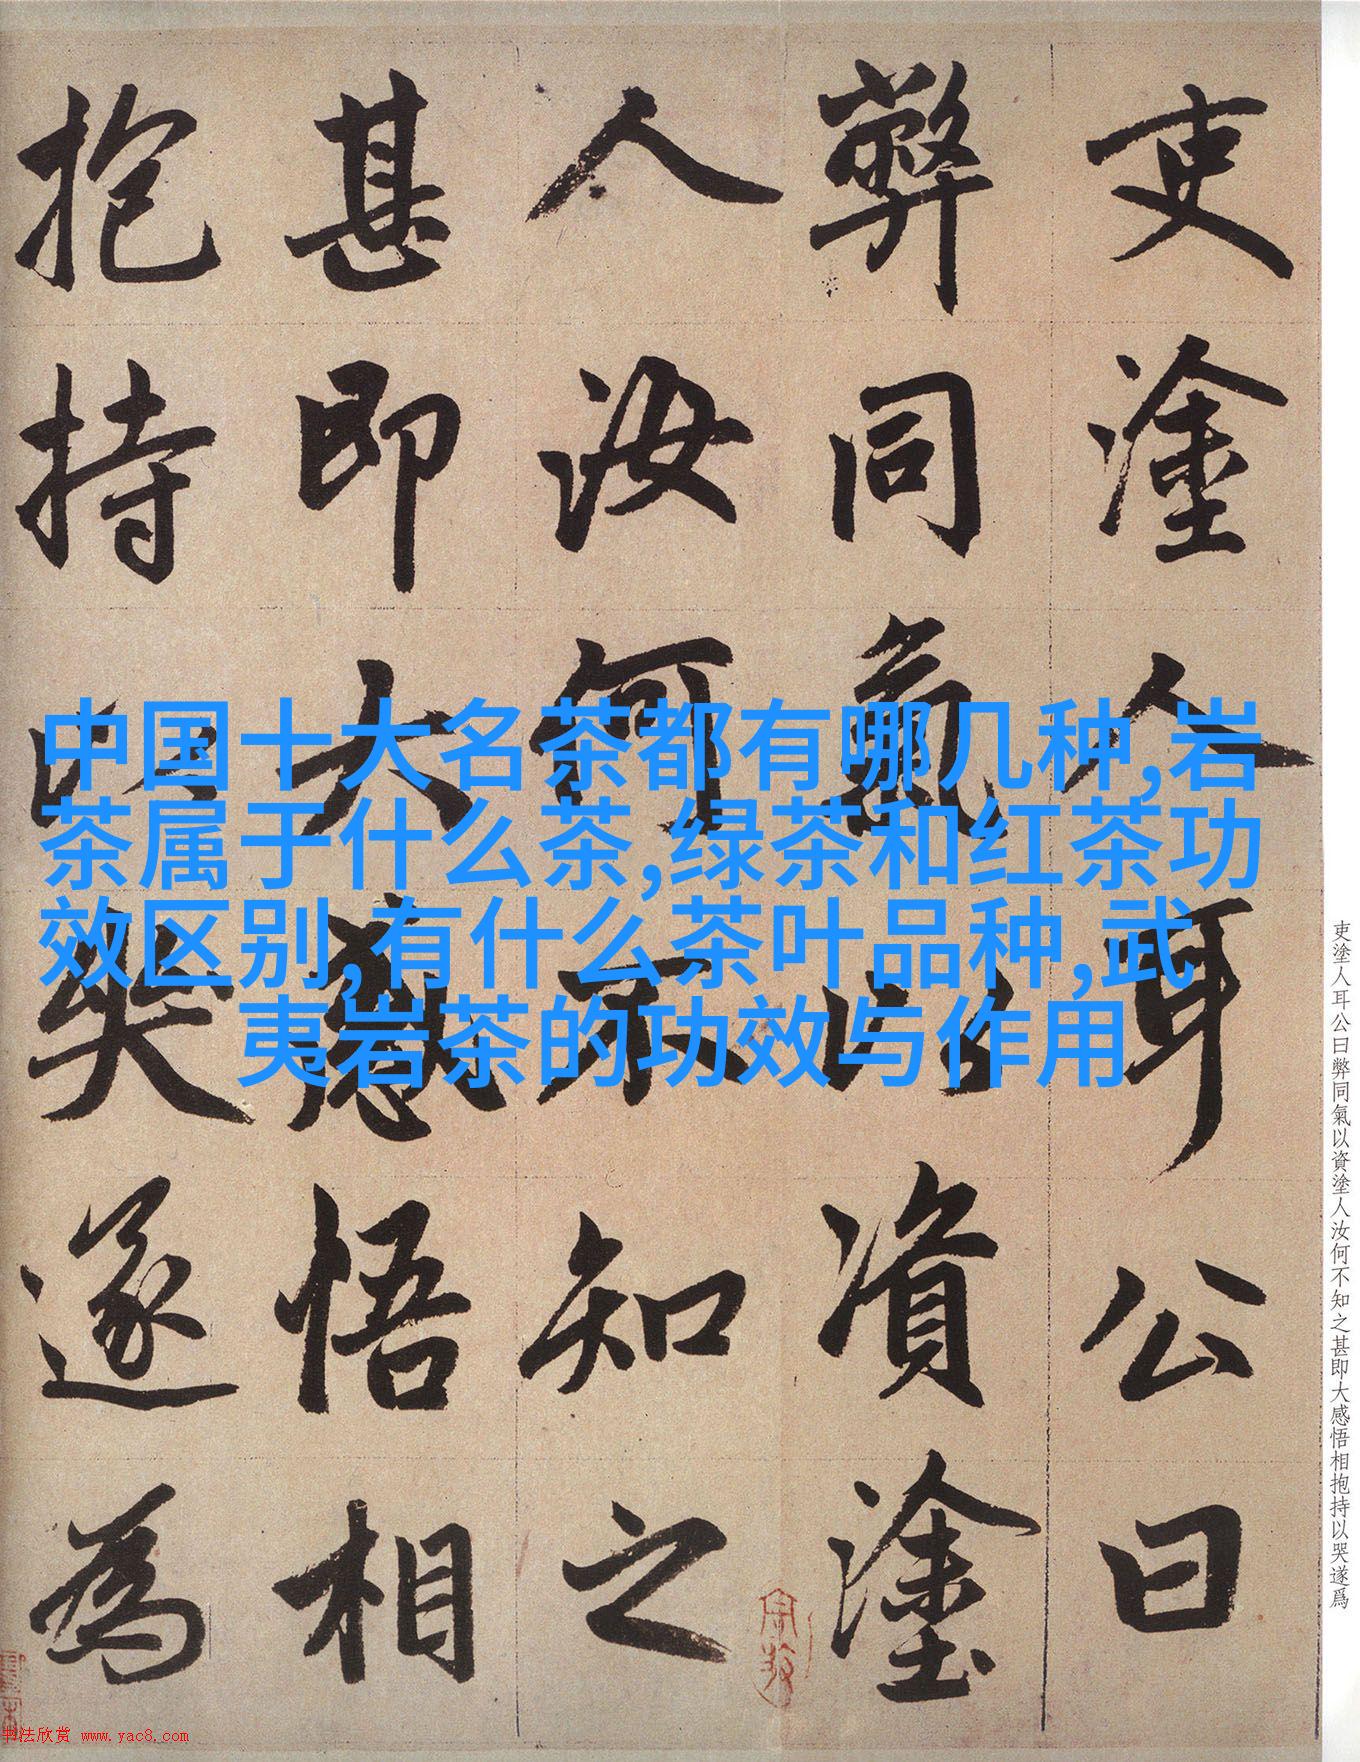 吏塗人耳公曰
弊同氣以資塗
人汝何不知之
甚即大感悟相
抱持以哭遂為
中国十大名茶都有哪几种,岩
茶属于什么茶,绿茶和红茶功
效区别,有什么茶叶品种,武
夷岩茶的功效与作用
吏塗人耳公曰弊同氣以資塗人汝何不知之甚即大感悟相抱持以哭遂爲
书法欣赏 www.yac8.com